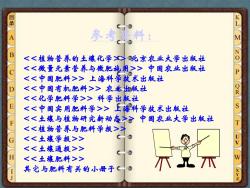 参考资料：
<<植物营养的土壤化学>> 北京农业大学出版社
<<微量元素营养与微肥施用>> 中国农业出版社
<<中国肥料>> 上海科学技术出版社
<<中国有机肥料>> 农业出版社
<<化学肥料学>> 科学出版社
<<中国实用肥料学>> 上海科学技术出版社
<<土壤与植物研究新动态>> 中国农业大学出版社
<<植物营养与肥料学报>>
<<土壤学报>>
<<土壤通报>>
<<土壤肥料>>
其它与肥料有关的小册子